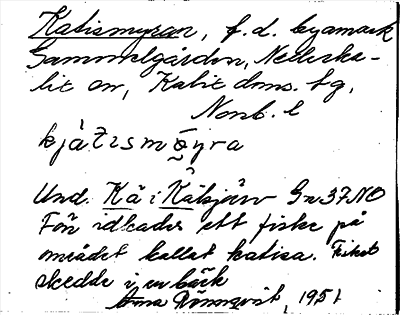 Katismyran, f.d. byamark
Gammelgården, Nederka-
lix sn, Kalix dms. tg,
Norrb. l
kjàtismỳra
Und. Kä i Kälsjärv Gr 37 NO
Förr idkades ett fiske på
området kallat katisa. Fisket
skedde i en bäck
Anna Rönnqvist, 1951